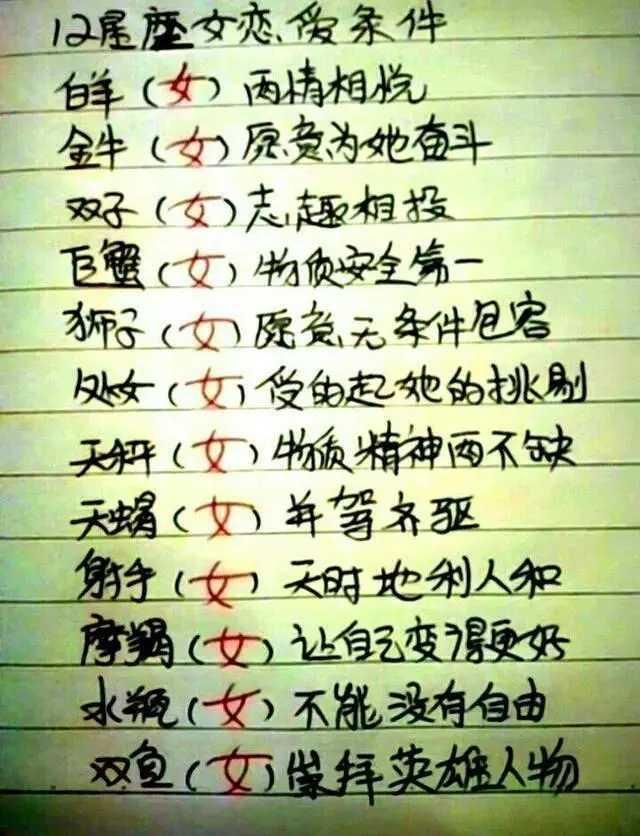 12星座女恋爱条件
白羊（女）两情相悦
金牛（女）愿意为她奋斗
双子（女）志趣相投
巨蟹（女）物质安全第一
狮子（女）愿意无条件包容
处女（女）受的起她的挑剔
天秤（女）物质精神两不缺
天蝎（女）并驾齐驱
射手（女）天时地利人和
摩羯（女）让自己变得更好
水瓶（女）不能没有自由
双鱼（女）崇拜英雄人物